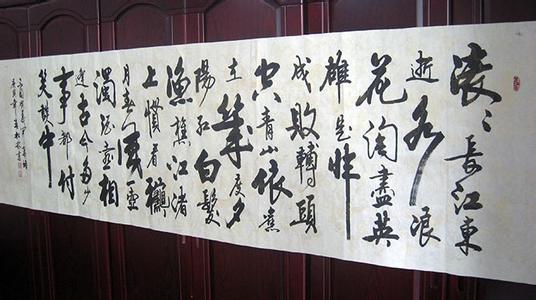 滚〻長江東
逝水浪
花淘盡英
雄是非
成敗轉頭
空青山依舊
在幾度夕
陽紅白髮
漁樵江渚
上慣看秋
月春風一壺
濁酒喜相
逢古今多少
事都付
笑談中